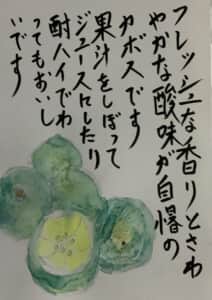 フレッシュな香りとさわ
やかな酸味が自慢の
カボスです
果汁をしぼって
ジュースにしたり
酎ハイでわ
ってもおいし
いです